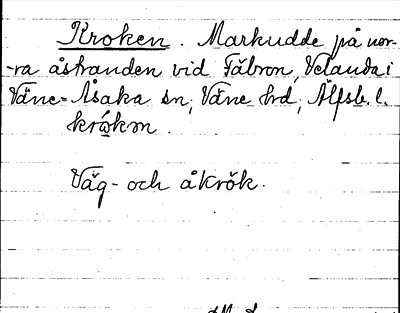 Kroken. Markudde på nor-
-ra åstranden vid Fåbron, Velanda i
Väne-Åsaka sn, Väne hd, Älfsb. l.
krókm.
Väg- och åkrök.